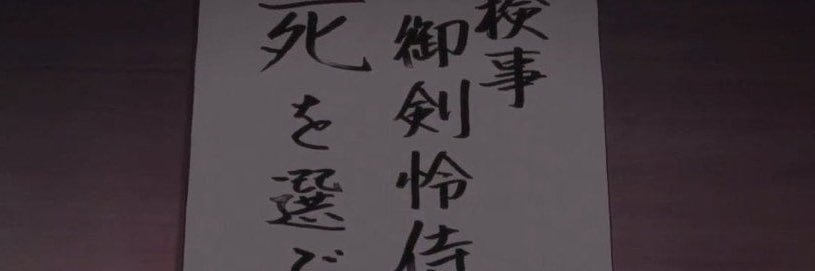 検事
御剣怜侍
死を選び